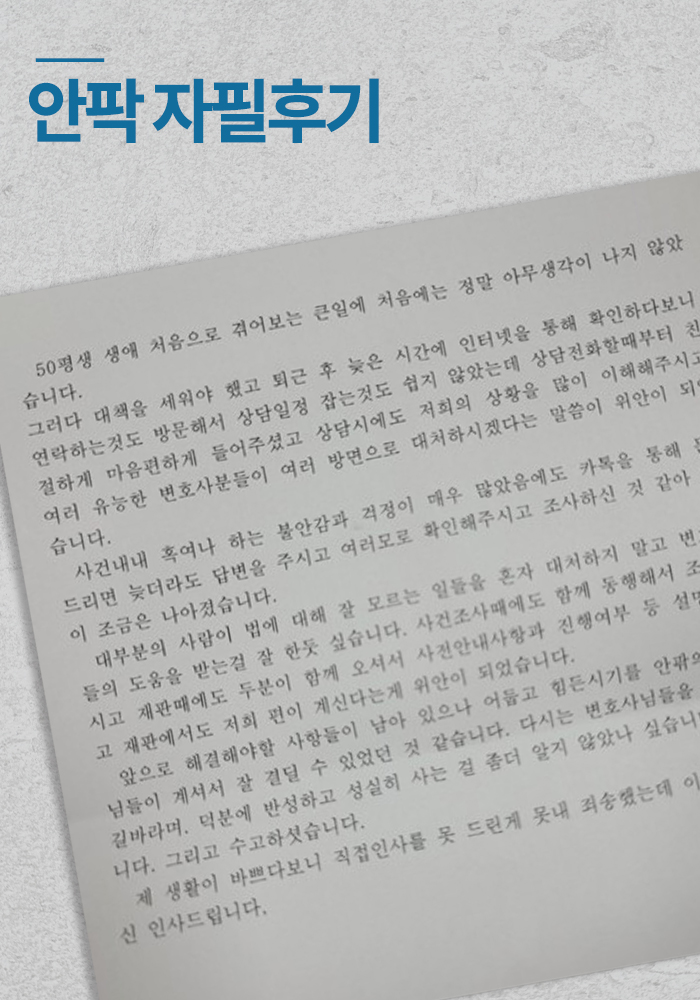 안팍 자필후기
50평생 생애 처음으로 겪어보는 큰일에 처음에는 정말 아무생각이 나지 않았
습니다.
그러다 대책을 세워야 했고 퇴근 후 늦은 시간에 인터넷을 통해 확인하다보니
연락하는것도 방문해서 상담일정 잡는것도 쉽지 않았는데 상담전화할때부터 친
절하게 마음편하게 들어주셨고 상담시에도 저희의 상황을 많이 이해해주시고
여러 유능한 변호사분들이 여러 방면으로 대처하시겠다는 말씀이 위안이 되
습니다.
사건내내 혹여나 하는 불안감과 걱정이 매우 많았음에도 카톡을 통해
드리면 늦더라도 답변을 주시고 여러모로 확인해주시고 조사하신 것 같아
이 조금은 나아졌습니다.
대부분의 사람이 법에 대해 잘 모르는 일들을 혼자 대처하지 말고 변
들의 도움을 받는걸 잘 한듯 싶습니다. 사건조사때에도 함께 동행해서 조
시고 재판때에도 두분이 함께 오셔서 사전안내사항과 진행여부 등 설명
고 재판에서도 저희 편이 계신다는게 위안이 되었습니다.
앞으로 해결해야할 사항들이 남아 있으나 어둡고 힘든시기를 안팍의
님들이 계셔서 잘 견딜 수 있었던 것 같습니다. 다시는 변호사님들을
길바라며. 덕분에 반성하고 성실히 사는 걸 좀더 알지 않았나 싶습니
니다. 그리고 수고하셧습니다.
제 생활이 바쁘다보니 직접인사를 못 드린게 못내 죄송했는데 이
신 인사드립니다.